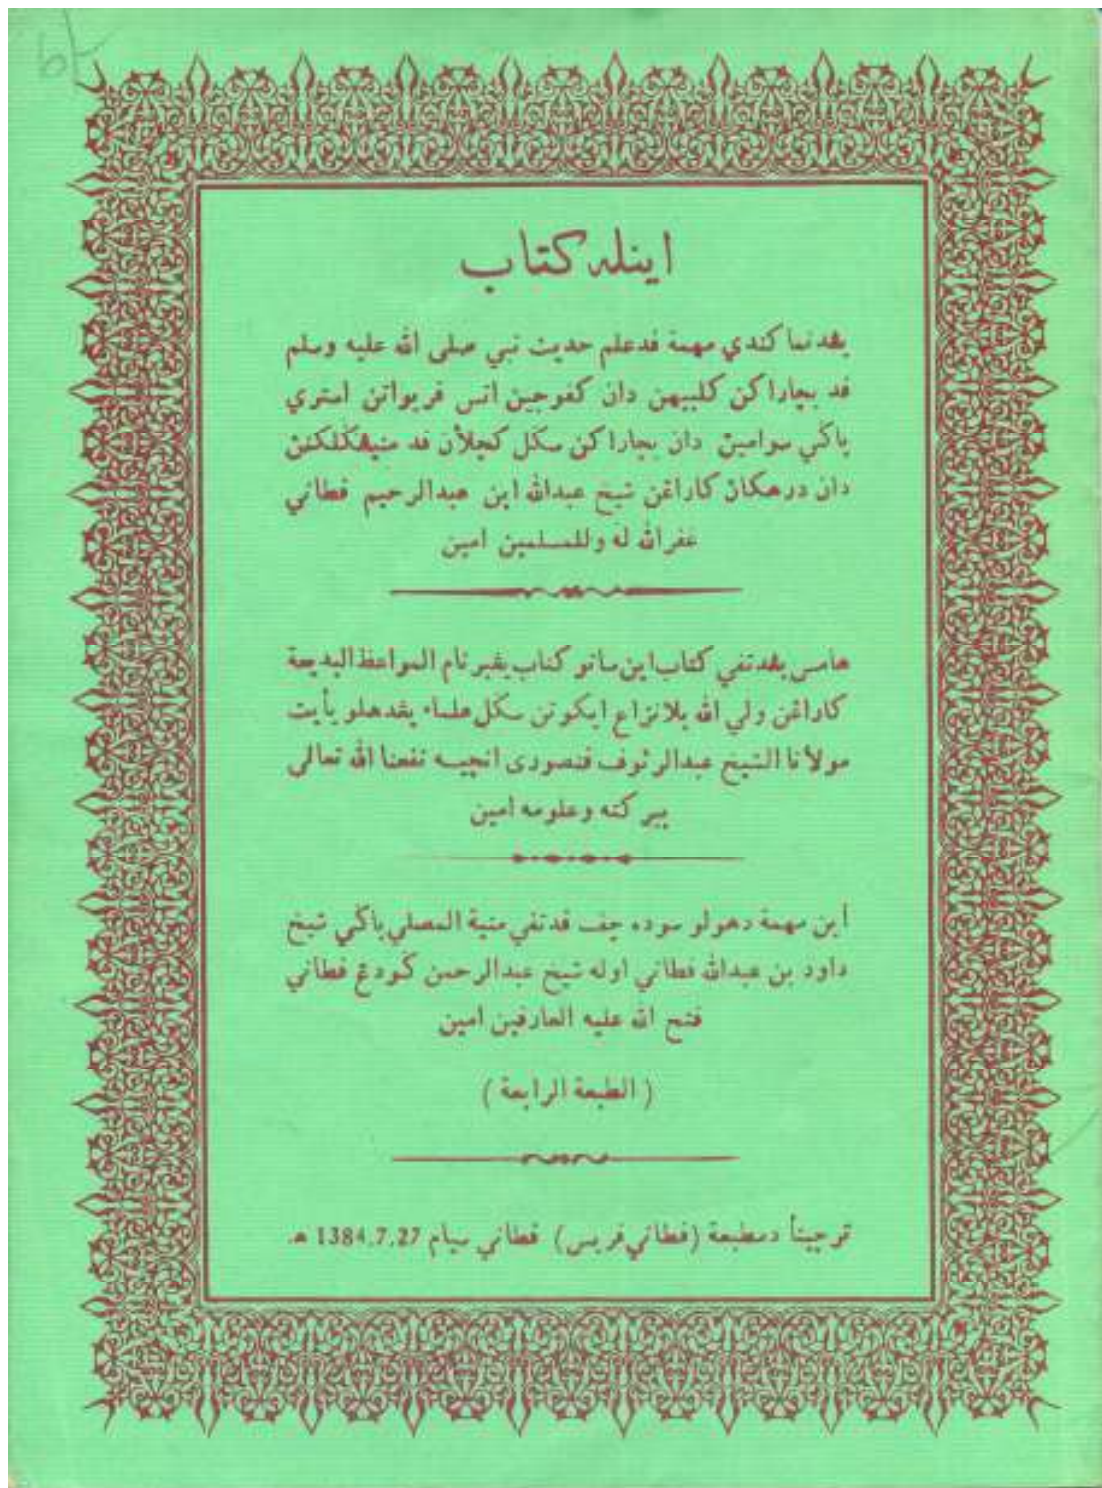 اينله كتاب
يڠد نما كندي مهمة فدعلم حديث نبي صلى الله عليه وسلم
فد بچاراكن كلبيهن دان كفوجين اتس فربواتن استري
باݢي سوامين دان بچاراكن سكل كچلاٴن فد منيڠݢلكنن
دان درهكان كاراڠن شيخ عبدالله ابن عبدالرحيم فطاني
غفرالله له وللمسلمين امين
هامس يڠدتفي كتاب اين ساتو كتاب يڠبرنام المواعظ البديعة
كاراڠن ولي الله بلانزاع ايكوتن سكل علماء يڠدهلو يأيت
مولانا الشيخ عبدالرئوف فنصوري اڽجيه نفعنا الله تعالى
ببركته وعلومه امين
أين مهمة دهولو سوده چف فدتفي منية المصلي باݢي شيخ
داود بن عبدالله فطاني اوله شيخ عبدالرحمن ݢودڠ فطاني
فتح الله عليه العارفين امين
( الطبعة الرابعة )
ترچيتأ دمطبعة (فطاني فريس) فطاني سيام 1384.7.27 هـ.